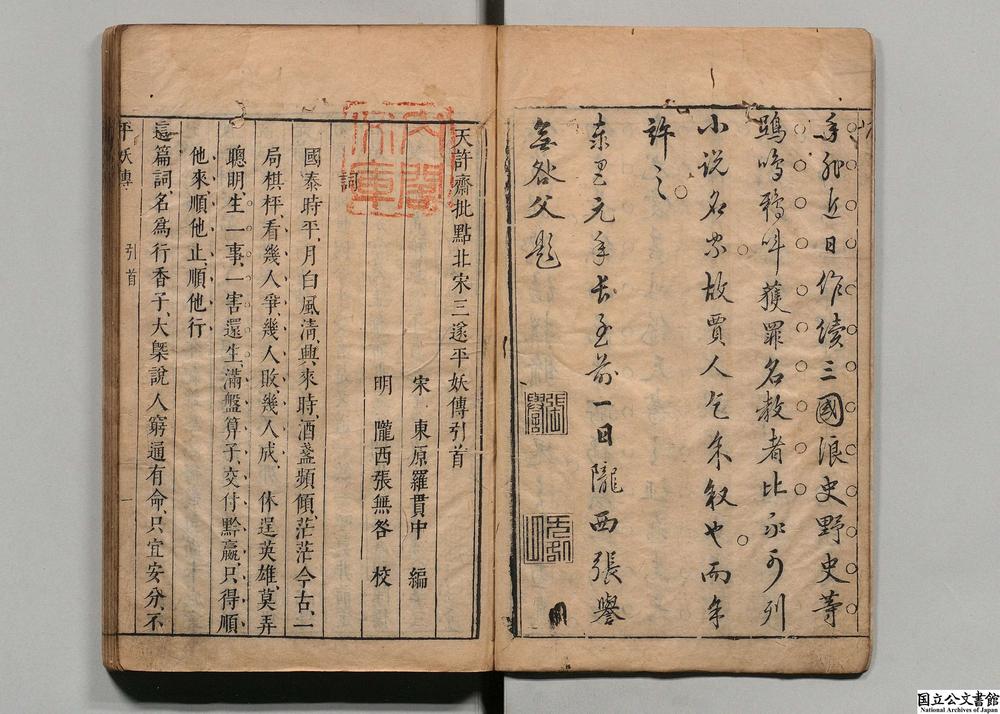 手非近日作續三國浪史野史等
鴟鳴鴉叫獲罪名教者比永可列
小說名家故賈人乞余叙也而余
許之
泰昌元年長至前一日隴西張譽
無咎父題
張譽
天許齋批點北宋三遂平妖傳引首
宋 東原羅貫中 編
明 隴西張無咎 校
詞
國泰時平月白風清興來時酒盞頻傾茫茫今古一
局棋枰看幾人爭幾人敗幾人成 休逞英雄莫弄
聰明生一事一害還生滿盤算子交付黔嬴只得順
他來順他止順他行
這篇詞名爲行香子大槩說人窮通有命只宜安分不
平妖傳 引首 一
內閣文庫
国立公文書館
National Archives of Japan